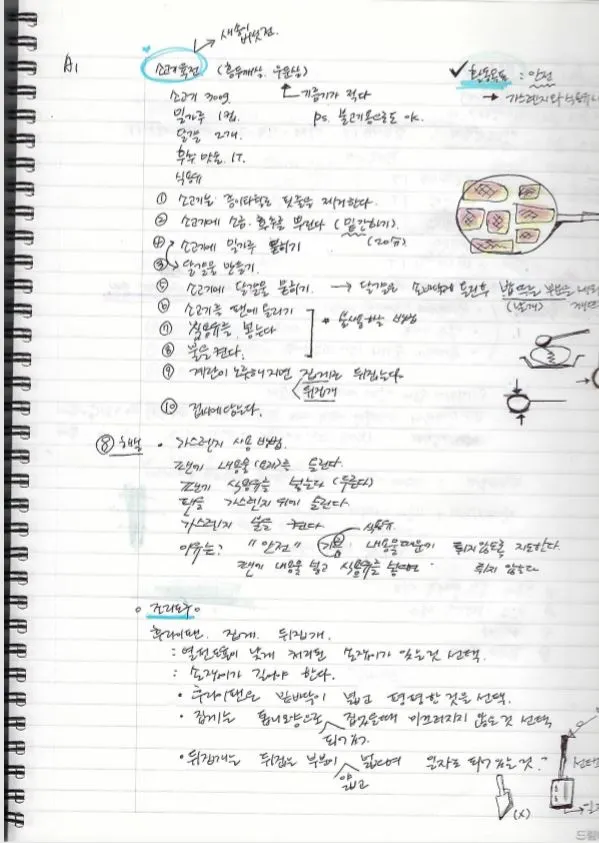 새송이버섯전.
A1
소고기육전 (홍두깨살, 우둔살)
✓ 활동목표 : 안전
소고기 300g
기름기가 적다
→ 가스렌지와 식용유
밀가루 1컵.
ps. 불고기용으로도 ok.
달걀 2개.
후추 맛을, 1T.
식용유
① 소고기는 종이타월로 핏물을 제거한다.
② 소고기에 소금, 후추를 뿌린다 (밑간하기).
④ 소고기에 밀가루 묻히기 (20分)
③ 달걀물 만들기.
⑤ 소고기에 달걀물 묻히기. → 달걀은
(날개)
⑥ 소고기를 팬에 올리기
* 불사용하는 방법
⑦ 식용유를 붓는다
⑧ 불을 켠다.
⑨ 계란이 노릇해지면 집게로 뒤집는다.
뒤집개
⑩ 접시에 담는다.
⑧ 해설 • 가스렌지 사용 방법.
팬에 내용물(요리)를 올린다.
팬에 식용유를 넣는다 (두른다)
팬을 가스렌지 위에 올린다.
가스렌지 불을 켠다.
식용유
이유는? "안전" 내용물때문에 튀지않도록 지도한다.
팬에 내용을 넣고 식용유를 튀지 않는다
○ 조리도구 ○
후라이팬. 집게. 뒤집개.
: 열전도율이 낮게 처리된 손잡이가 있는것 선택.
: 손잡이가 길어야 한다.
• 후라이팬은 밑바닥이 넓고 평평한 것을 선택.
• 집게는 톱니모양으로 집었을때 미끄러지지 않는것 선택
되어있거.
• 뒤집개는 뒤집는 부분이 넓으며 일자로 되어있는것. 선택
얇고
(X)